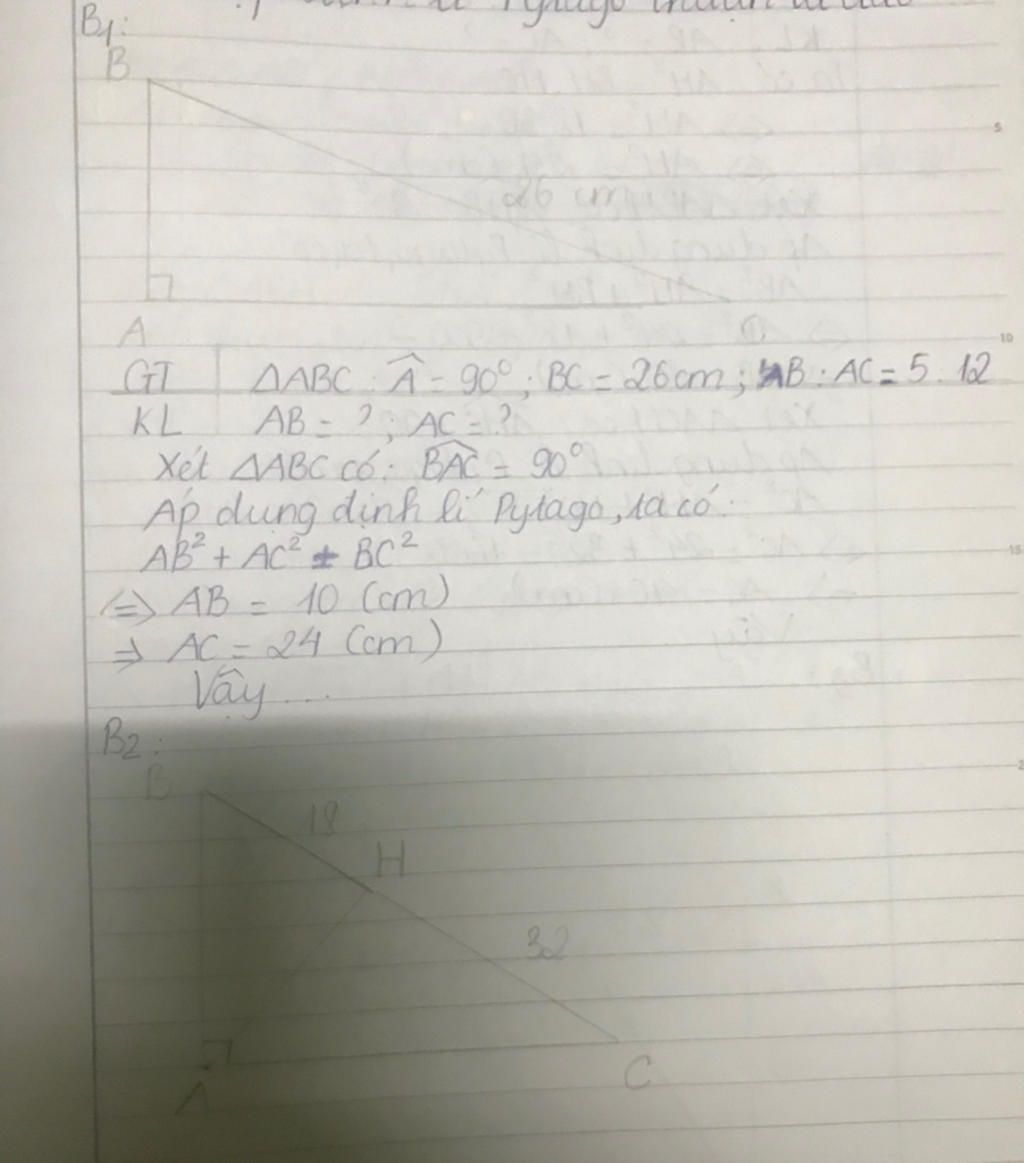 Pytago
B1:
B
26 cm
A
GT ΔABC: Â = 90°; BC = 26cm; AB : AC = 5:12
KL AB = ?; AC = ?
Xét ΔABC có: BAC = 90°
Áp dụng định lí Pytago, ta có:
AB² + AC² = BC²
⇔ AB = 10 (cm)
⇒ AC = 24 (cm)
Vậy ...
B2:
B
18
H
32
A
C